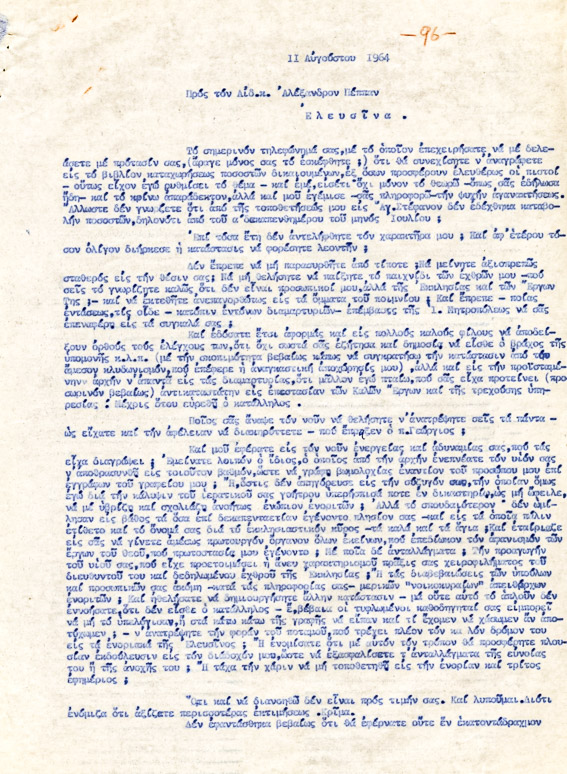 -96-
11 Αὐγούστου 1964
Πρός τόν Αἰδ.κ. Ἀλέξανδρον Πέππαν
Ἐλευσῖνα .
Τό σημερινόν τηλεφώνημά σας,μέ τό ὁποῖον ἐπεχειρήσατε νά μέ δελε-
άσετε μέ πρότασίν σας,(ἄραγε μόνος σας τό ἐσκέφθητε ;) ὅτι θά συνεχίσητε ν'ἀναγράφετε
εἰς τό βιβλίον καταχωρήσεως ποσοστῶν δικαιουμένων,ἐξ ὅσων προσφέρουν ἐλευθέρως οἱ πιστοί
- οὕτως εἶχον ἐγώ ρυθμίσει τό θέμα - καί ἐμέ,εἰσέτι ὄχι μόνον τό θεωρῶ -ὅπως σᾶς ἐδήλωσα
ἤδη- καί τό κρίνω ἀπαράδεκτον,ἀλλά καί μοῦ ἐγέμισε -σᾶς πληροφορῶ-τήν ψυχήν ἀγανακτήσεως.
Ἄλλωστε δέν γνωρίζετε ὅτι ἀπό τῆς τοποθετήσεώς μου εἰς Ἁγ.Στέφανον δέν ἐδέχθημα καταβο-
λήν ποσοστῶν,δηλονότι ἀπό τοῦ α'δεκαπενθημέρου τοῦ μηνός Ἰουλίου ;
Ἐπί τόσα ἔτη δέν ἀντελήφθητε τόν χαρακτῆρα μου ; Καί ἀφ'ἑτέρου τό-
σον ὀλίγον διήρκεσε ἡ κατάστασις νά φορέσητε λεοντῆν ;
Δέν ἔπρεπε νά μή παρασυρθῆτε ἀπό τίποτε ;Νά μείνητε ἀξιοπρεπῶς
σταθερός εἰς τήν θέσιν σας; Νά μή θελήσητε νά παίξητε τό παιχνίδι τῶν ἐχθρῶν μου -πού
σεῖς τό γνωρίζετε καλῶς ὅτι δέν εἶναι προσωπικοί μου,ἀλλά τῆς Ἐκκλησίας καί τῶν Ἔργων
Της ;- καί νά ἐκτεθῆτε ἀνεπανορθώτως εἰς τά ὄμματα τοῦ ποιμνίου ; Καί ἔπρεπε - ποίας
ἐντάσεως,τίς οἶδε - κατόπιν ἐντόνων διαμαρτυριῶν- ἐπέμβασις τῆς Ἱ. Μητροπόλεως νά σᾶς
ἐπαναφέρῃ εἰς τά συγκαλά σας ;
Καί ἐδώσατε ἔτσι ἀφορμάς καί εἰς πολλούς καλούς φίλους νά ἀποδεί-
ξουν ὀρθούς τούς ἐλέγχους των,ὅτι ὄχι σωστά σᾶς ἐζήτησα καί δημοσίᾳ νά εἶσθε ὁ βράχος τῆς
ὑπομονῆς κ.λ.π. (μέ τήν σκοπιμότητα βεβαίως κάπως νά συγκρατήσω τήν κατάστασιν ἀπό τόν
ἄμεσον κλυδωνισμόν,πού ἐπέφερε ἡ ἀναγκαστική ἀποχώρησίς μου) ,ἀλλά καί εἰς τήν προϊσταμέ-
νην ἀρχήν ν'ἀπαντᾷ εἰς τάς διαμαρτυρίας,ὅτι μᾶλλον ἐγώ πταίω,πού σᾶς εἶχα προτείνει (προ-
σωρινόν βεβαίως) ἀντικαταστάτην εἰς ἐπιστασίαν τῶν Καλῶν Ἔργων καί τῆς τρεχούσης ὑπη-
ρεσίας . Μέχρις ὅτου εὑρεθῇ ὁ κατάλληλος .
Ποῖος σᾶς ἄναψε τόν νοῦν νά θελήσητε ν'ἀνατρέψητε σεῖς τά πάντα -
ὡς εἴχατε καί τήν ἀφέλειαν νά διασπρόττετε - πού ἔπραξεν ὁ π.Γεώργιος ;
Καί μοῦ ἐφέρατε εἰς τόν νοῦν ἐνεργείας καί ἀδυναμίας σας,πού τάς
εἶχα διαγράψει ; Ἐμείνατε λοιπόν ὁ ἴδιος,ὁ ὁποῖος ἀπό τήν ἀρχήν ἐνεπνέατε τόν υἱόν σας
ν'ἀποθρασυνθῇ εἰς τοιοῦτον βαθμόν,ὥστε νά γράφῃ βωμολοχίας ἐναντίον τοῦ προσώπου μου ἐπί
ἐγγράφων τοῦ γραφείου μου ; Ἤ,ὅστις δέν ἀπηγόρευσε εἰς τήν σύζυγόν σας,τήν ὁποίαν ὅμως
ἐγώ διά τήν κάλυψιν τοῦ ἱερατικοῦ σας γοήτρου ὑπερήσπισά ποτε ἐν δικαστηρίῳ,ὡς μή ὤφειλε,
νά μέ ὑβρίζῃ καί σχολιάζῃ ἀνοήτως ἐνώπιον ἐνοριτῶν ; Ἀλλά τό σπουδαιότερον ! δέν ὡμί-
λησαν εἰς βάθος τά ὅσα ἐπί δεκαπενταετίαν ἐγένοντο πλησίον σας -καί εἰς τά ὁποῖα πάλιν
ἐτίθετο καί τό ὄνομά σας διά τό ἐκκλησιαστικόν κῦρος -τά καλά καί τά ἅγια ;Καί ἐταίριαζε
εἰς σᾶς νά γίνετε ἀμέσως πρωτουργόν ὄργανον ὅλων ἐκείνων,πού ἐπεδίωκον τόν ἀφανισμόν τῶν
ἔργων τοῦ Θεοῦ,πού πρωτοστασίᾳ μου ἐγένοντο ; Μέ ποῖα δέ ἀνταλλάγματα ; Τήν προαγωγήν
τοῦ υἱοῦ σας,πού εἶχε προετοιμάσει ἡ ἄνευ χαρακτηρισμοῦ πρᾶξις σας χειροφιλήματος τοῦ
διευθυντοῦ του καί δεδηλωμένου ἐχθροῦ τῆς Ἐκκλησίας ;Ἤ τάς διαβεβαιώσεις τῶν ὑπούλων
καί προσωπικῶς σας ἀκόμη -κατά τάς πληροφορίας σας- μερικῶν "νοικοκυραίων" ἀπειθάρχων
ἐνοριτῶν ; Καί ἠθελήσατε νά δημιουργήσητε ἄλλην κατάστασιν- μέ οὔτε αὐτό τό ἁπλοῦν δέν
ἐννοήσατε,ὅτι δέν εἶσθε ὁ κατάλληλος - Ἔ,βέβαια οἱ τυφλωμένοι καθοδηγηταί σας εἰμπορεῖ
νά μή τό ὑπελόγισαν,ἤ στά κάτω κάτω τῆς γραφῆς νά εἶπαν καί τί ἔχομεν νά χάσωμεν ἄν ἀπο-
τύχωμεν ; - ν'ἀνατρέψητε τήν φοράν τοῦ ποταμοῦ,πού τρέχει πλέον τόν κα λόν δρόμον του
εἰς τά ἐνοριακά τῆς Ἐλευσῖνος ; Ἤ ἐνομίσατε ὅτι μέ αὐτόν τόν τρόπον θά προσφέρητε πλου-
σίαν ἐκδούλευσιν εἰς τόν διάδοχόν μου,ὥστε νά ἐξασφαλίσετε τ'ἀνταλλάγματα τῆς εὐνοίας
του ἤ τῆς ἀνοχῆς του ; Ἤ τάχα τήν χάριν νά μή τοποθετηθῇ εἰς τήν ἐνορίαν καί τρίτος
ἐφημέριος ;
Ὅτι καί νά διανοηθῶ δέν εἶναι πρός τιμήν σας. Καί λυποῦμαι.Διότι
ἐνόμιζα ὅτι ἀξίζετε περισσοτέρας ἐκτιμήσεως .Κρῖμα.
Δέν ἐφαντάσθηκα βεβαίως ὅτι θά ἐφέρνατε οὔτε ἕν ἑκατοντάδραχμον